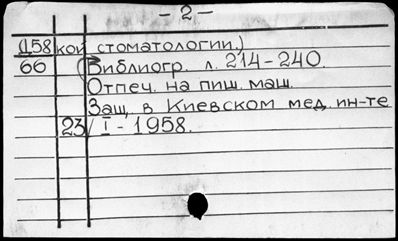 - 2 -
Д58 кой стоматологии.)
66 (Библиогр. л. 214-240.
Отпеч. на пиш. маш.
Защ. в Киевском мед. ин-те
23/I-1958.